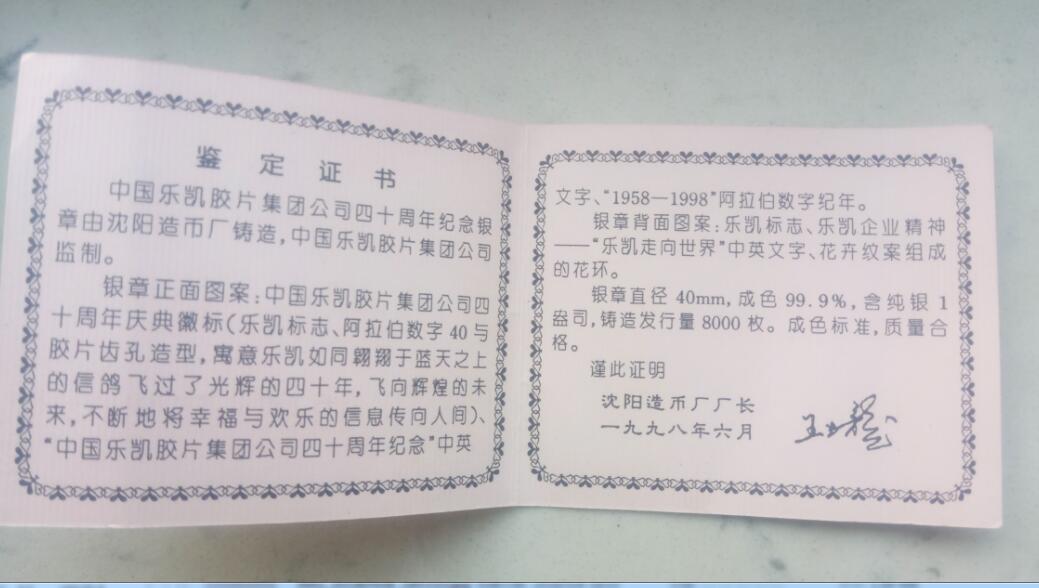 鉴定证书
中国乐凯胶片集团公司四十周年纪念银
章由沈阳造币厂铸造,中国乐凯胶片集团公司
监制。
银章正面图案:中国乐凯胶片集团公司四
十周年庆典徽标(乐凯标志、阿拉伯数字40与
胶片齿孔造型,寓意乐凯如同翱翔于蓝天之上
的信鸽飞过了光辉的四十年,飞向辉煌的未
来,不断地将幸福与欢乐的信息传向人间)、
“中国乐凯胶片集团公司四十周年纪念”中英
文字、“1958—1998”阿拉伯数字纪年。
银章背面图案:乐凯标志、乐凯企业精神
——“乐凯走向世界”中英文字、花卉纹案组成
的花环。
银章直径40mm,成色99.9%,含纯银1
盎司,铸造发行量8000枚。成色标准,质量合
格。
谨此证明
沈阳造币厂厂长
一九九八年六月